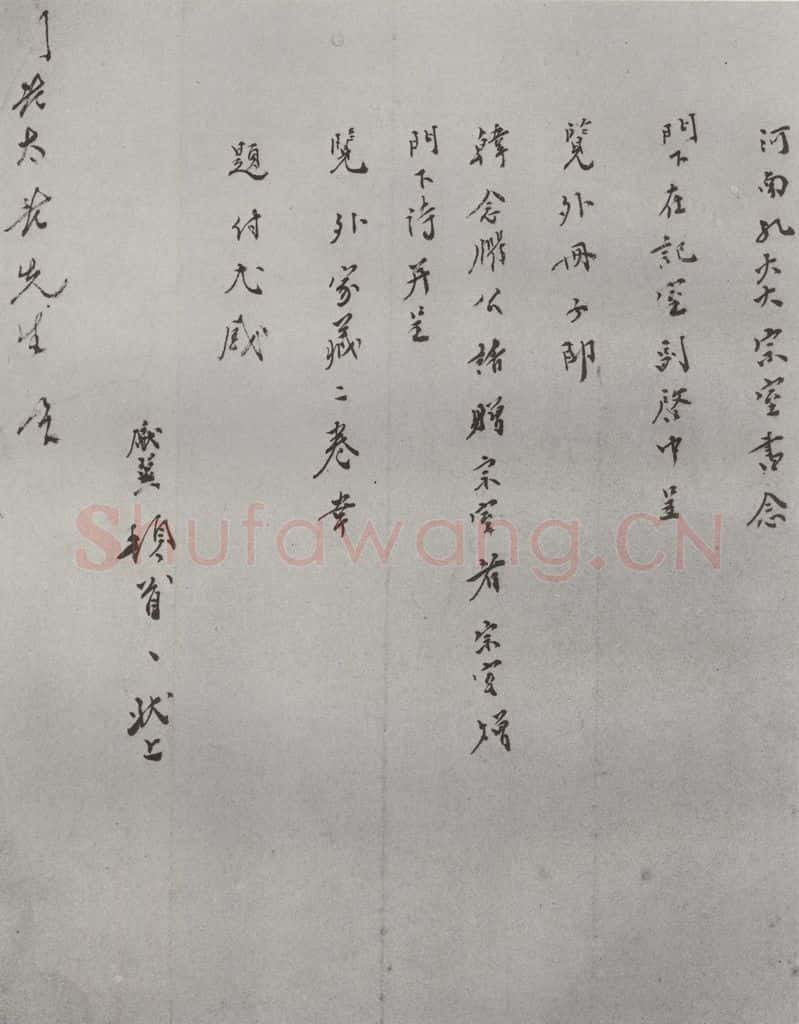 河南孔夫大宗室書念
門下在記室副啓中呈
覽外冊子即
韓念公諸贈宗室者宗室贈
門下詩并呈
覽外家藏二卷幸
題付尤感
頓首、狀上
老先生
Shufawang.CN